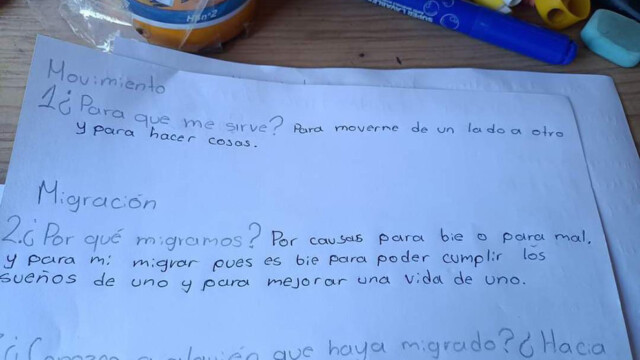 Movimiento
1¿Para que me sirve? Para moverme de un lado a otro
y para hacer cosas.
Migración
2.¿Por qué migramos? Por causas para bie o para mal,
y para mi migrar pues es bie para poder cumplir los
sueños de uno y para mejorar una vida de uno.
a alguién que haya migrado? ¿Hacia